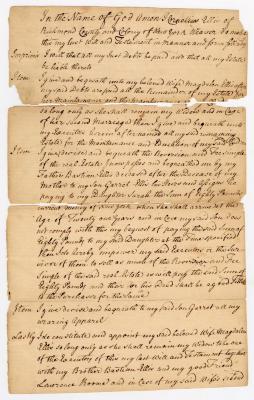 In the Name of God Amen I Cornelius Ellis of
Richmond County and Colony of New York Weaver Do make
this my last Will and Testament in Manner and form following
Imprimis I will that all my Just debts be paid and that all my Estate
be hable thereto
Item I give and bequeath unto my beloved Wife Magdalen Ellis after
my said debts are paid all the Remainder of my Estate for
her Maintenance and the
so long only as she shall remain my Widow and in Case
of her second Marriage then I give and bequeath unto
my Executors herein after named all my said remaining
Estate for the Maintenance and
Item I give devise and bequeath the Reversion and Fee simple
of the real Estate I now possess and bequeathed me by my
Father Bastian Ellis deceased after the Decease of my
Mother to my Son Garret Ellis his Heirs and Assigns he
paying to my Daughter Sarah the Sum of Eighty Pounds
current money of New York when she shall arrive at the
Age of Twenty one Years and in Case my said Son does
not comply with this my bequest of paying the said Sum of
Eighty Pounds to my said Daughter at the Time specified
then I do hereby impower my said Executors or the Sur-
vivors of them to sell as much of the Reversion and Fee
Simple of the said real Estate as will pay the said Sum of
Eighty Pounds and their or his Deed shall be a good Title
to the Purchaser for the same
Item I give devise and bequeath to my said Son Garret all my
wearing Apparel
Lastly I do constitute and appoint my said beloved Wife Magdalen
Ellis so long only as she shall remain my Widow to be one
of the Executors of this my last Will and Testament together
with my Brother Bastian Ellis and my good Friend
Lawrence and in Case of my said Wifes second